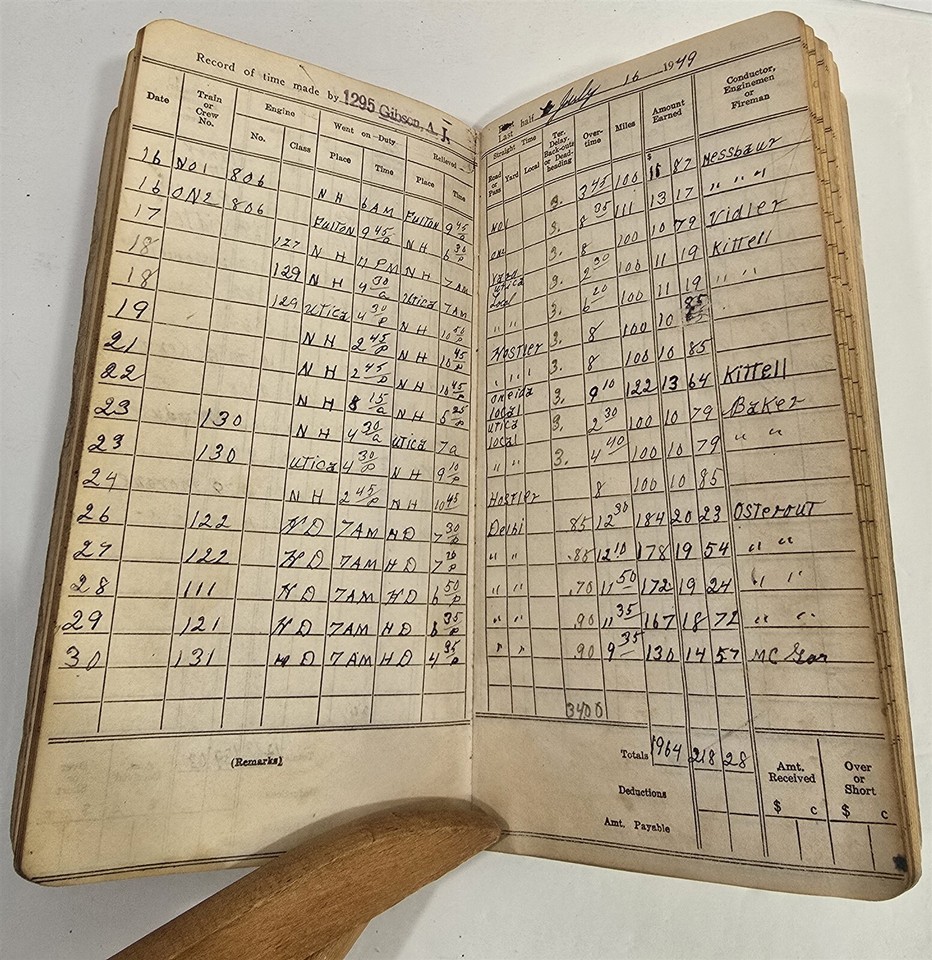 Record of time made by 1295 Gibson, A. J.
Date Train or Crew No. Engine No. Class Went on Duty Place Time Relieved Place Time
16 NO1 806 N H 6 AM Fulton 9 45 a
16 ON2 806 Fulton 9 45 a N H 6 30 p
17 N H 11 PM N H 7 AM
18 127 N H 4 30 a Utica 7 AM
18 129 Utica 4 30 p N H 10 50 p
19 129 N H 2 45 p N H 10 45 p
21 N H 2 45 p N H 10 45 p
22 N H 8 15 a N H 5 25 p
23 130 N H 4 30 a Utica 7 a
23 130 Utica 4 30 p N H 9 10 p
24 N H 2 45 p N H 10 45
26 122 H D 7 AM H D 7 30 p
27 122 H D 7 AM H D 7 p
28 111 H D 7 AM H D 6 50 p
29 121 H D 7 AM H D 6 35 p
30 131 H D 7 AM H D 4 35 p
(Remarks)
Last half July 16 1949
Straight Time Road or Pass Yard Local Ter. Delay, Back-outs or Dead-heading Over-time Miles Amount Earned Conductor, Enginemen or Fireman
$
NO1 3. 3 45 100 11 87 Messbaur
ON2 3. 8 35 111 13 17 " " "
Yard 3. 8 100 10 79 Vidler
Utica Local 3. 2 30 100 11 19 Kittell
" " 3. 6 20 100 11 19 " "
Hostler 3. 8 100 10 85
" " " 3. 8 100 10 85
Oneida Local 3. 9 10 122 13 64 Kittell
Utica Local 3. 2 30 100 10 79 Baker
" " 3. 4 40 100 10 79 " "
Hostler 8 100 10 85
Delhi .85 12 30 184 20 23 Osterout
" " .85 12 10 178 19 54 " "
" " .70 11 50 172 19 24 " "
" " .90 11 35 167 18 72 " "
" " .90 9 35 130 14 57
3400
Totals 1964 218 28
Deductions
Amt. Payable
Amt. Received $ c
Over or Short $ c